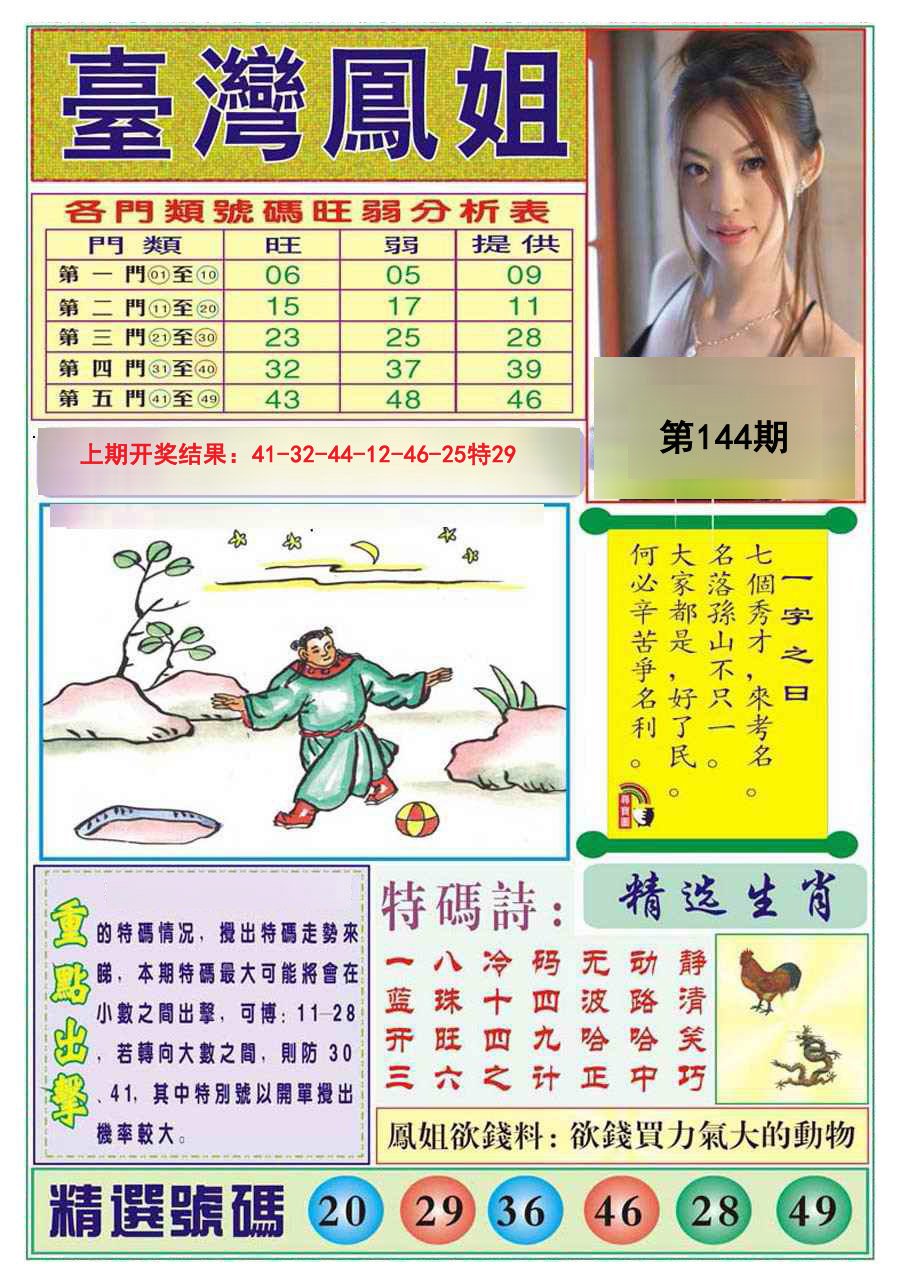 臺灣鳳姐
各門類號碼旺弱分析表
門類 旺 弱 提供
第一門01至10 06 05 09
第二門11至20 15 17 11
第三門21至30 23 25 28
第四門31至40 32 37 39
第五門41至49 43 48 46
上期开奖结果：41-32-44-12-46-25特29
第144期
一字之曰
七個秀才，來考名。
名落孫山不只一。
大家都是，好了民。
何必辛苦爭名利。
尋寶圖
重點出擊
的特碼情況，攪出特碼走勢來
睇，本期特碼最大可能將會在
小數之間出擊，可博：11—28
，若轉向大數之間，則防 30
、41，其中特別號以開單攪出
機率較大。
特碼詩：
一八冷码无动静
蓝珠十四波路清
开旺四九哈哈笑
三六之计正中巧
精选生肖
鳳姐欲錢料：欲錢買力氣大的動物
精選號碼 20 29 36 46 28 49